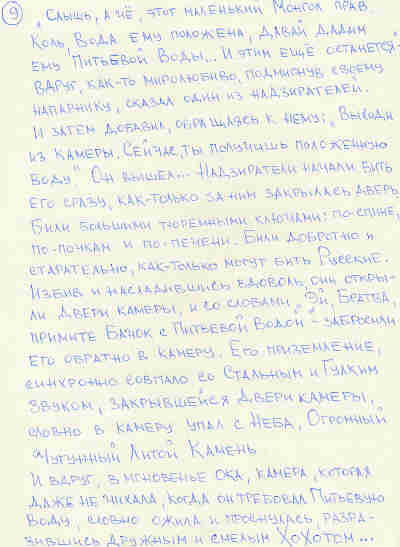 9
„Слышь, а чё, этот маленький Монгол прав.
Коль, Вода ему положена, давай дадим
ему Питьевой Воды... И этим ещё останется"-
Вдруг, как-то миролюбиво, подмигнув своему
напарнику, сказал один из надзирателей.
И затем добавил, обращаясь к нему: „Выходи
из камеры. Сейчас, ты получишь положенную
воду." Он вышел... Надзиратели начали бить
его сразу, как-только за ним закрылась дверь.
Били большими тюремными ключами: по-спине,
по-почкам и по-печени. Били добротно и
старательно, как-только могут бить Русские.
Избив и насладившись вдоволь, они откры-
ли двери камеры, и со словами „Эй, Братва,
примите Бачок с Питьевой Водой" - забросили
его обратно в камеру. Его приземление,
синхронно совпало со Стальным и Гулким
звуком, закрывшейся двери камеры,
словно в камеру упал с Неба, Огромный
Чугунный Литой Камень
И вдруг, в мгновенье ока, камера, которая
даже не чихала, когда он требовал Питьевую
Воду, словно ожила и проснулась, разра-
зившись дружным и смелым ХоХотом...